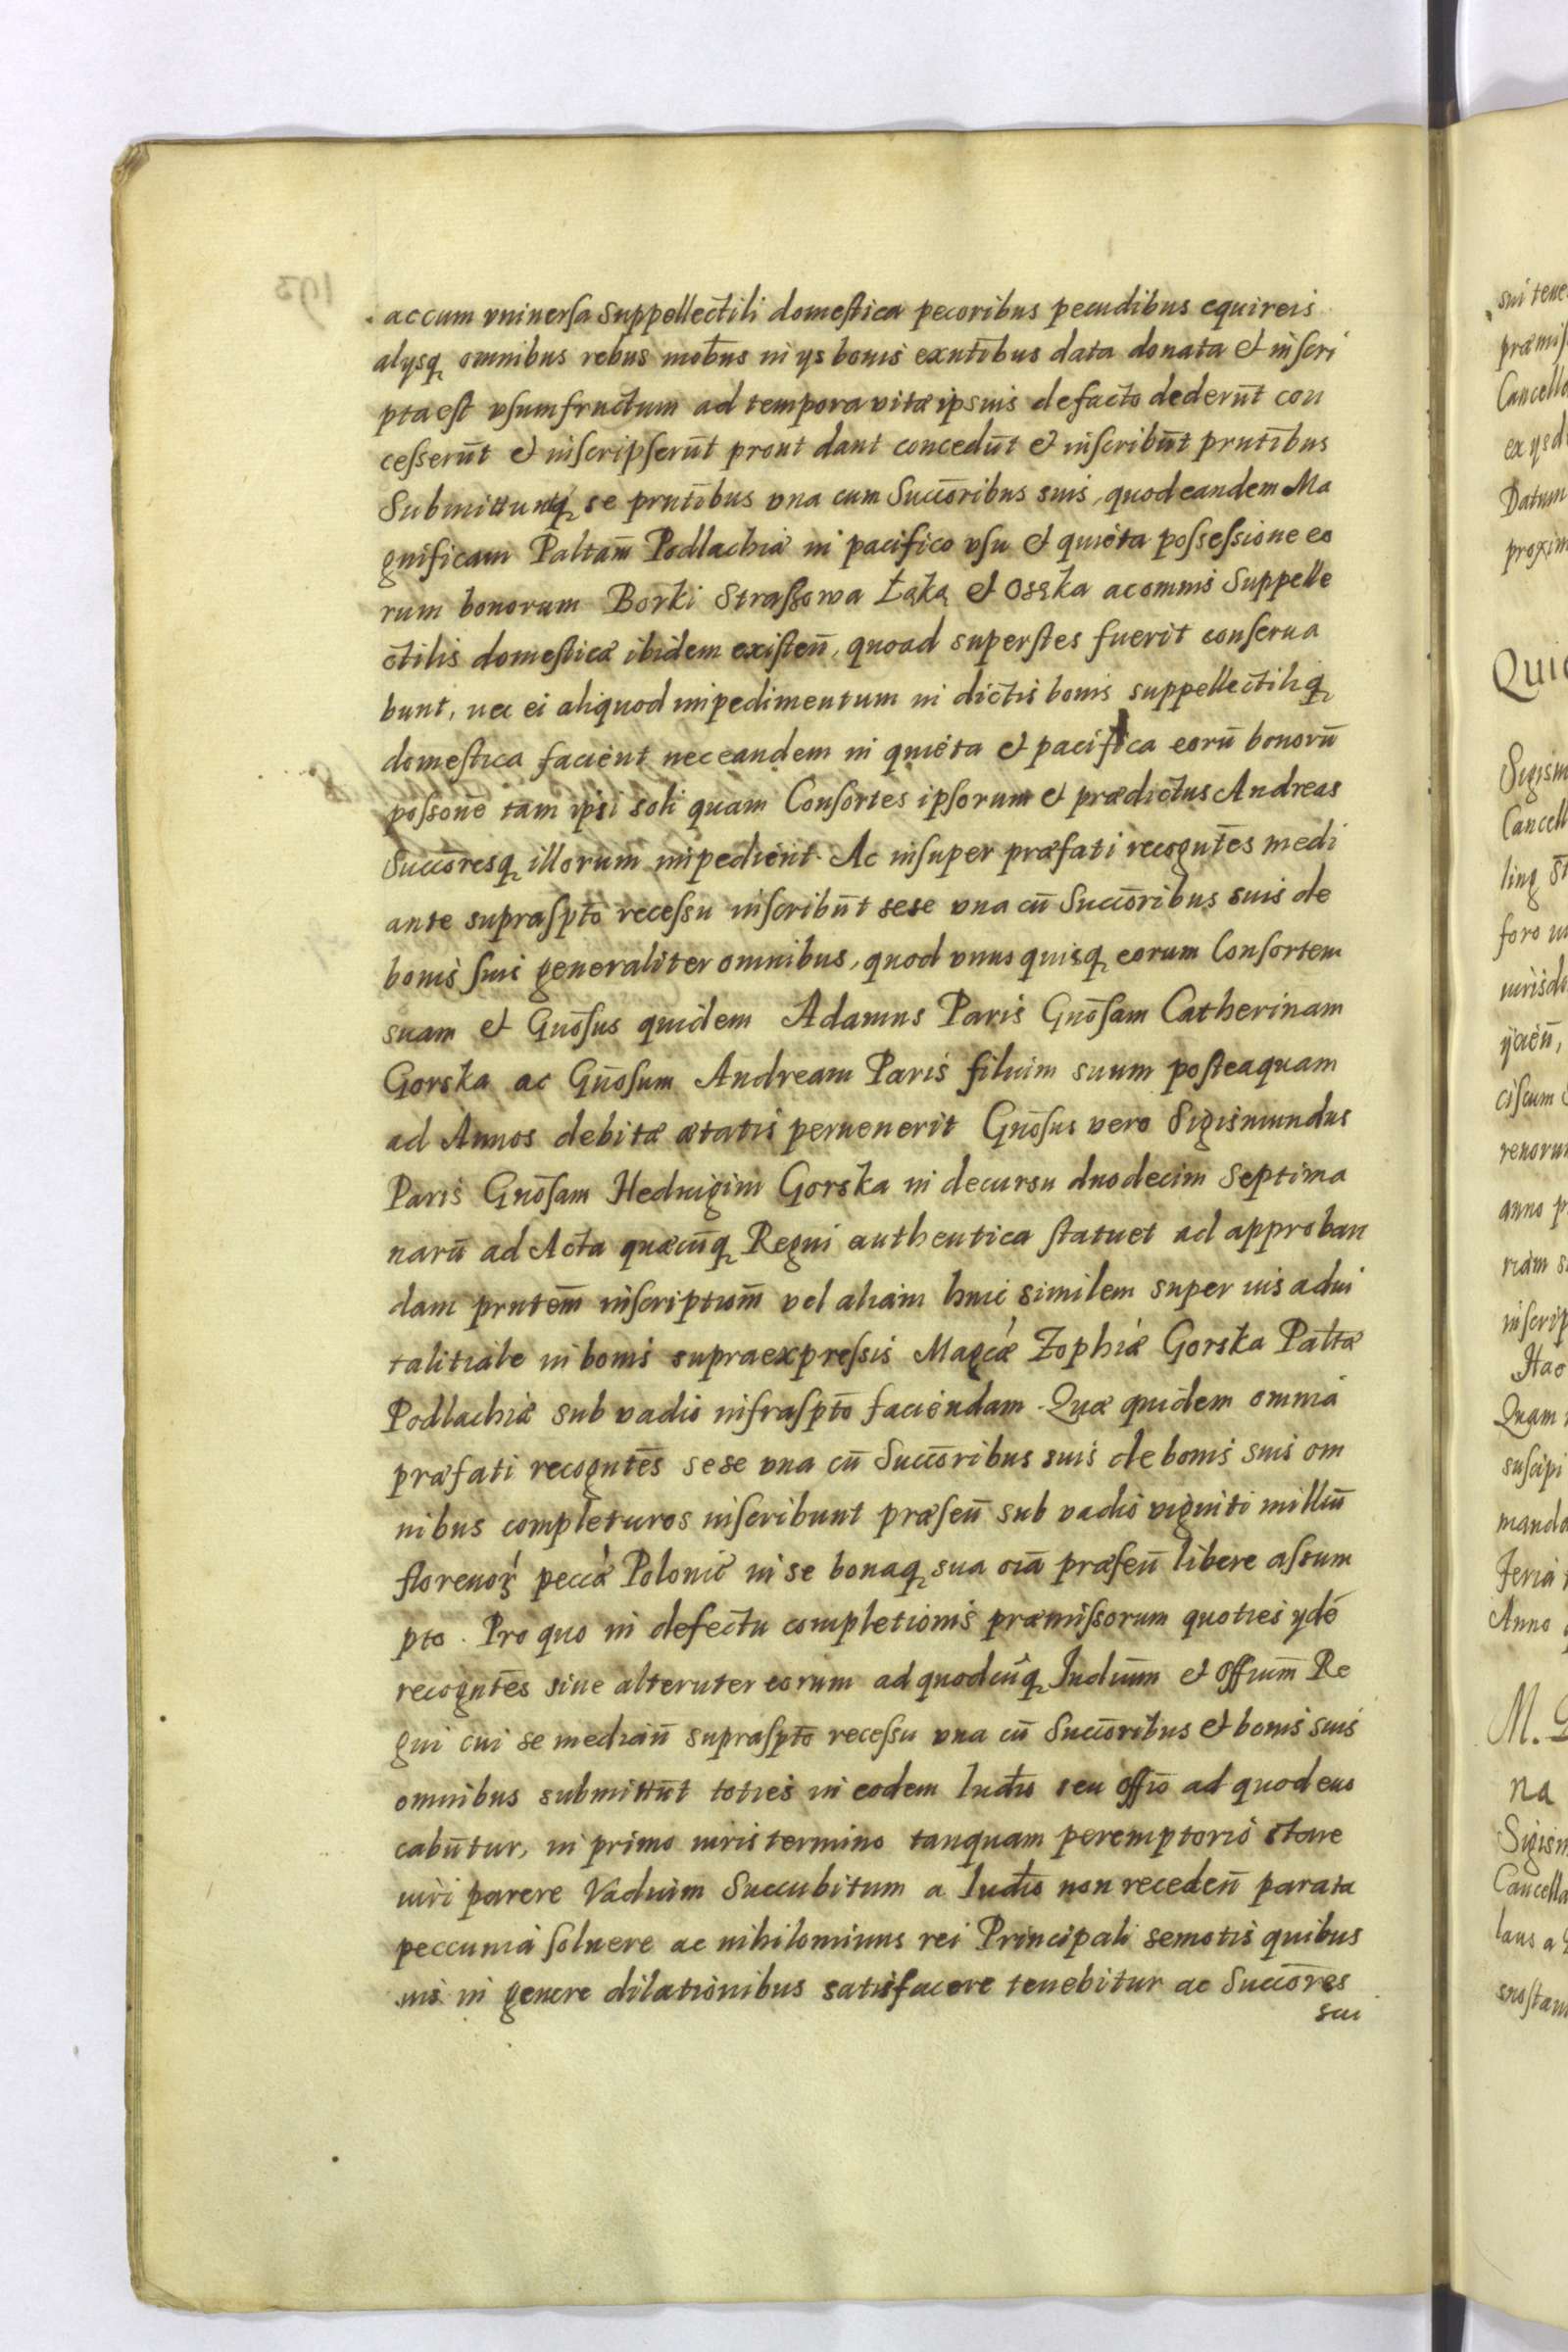 accum vniuersa suppellectili domestica pecoribus pecudibus equireis
alysq omnibus rebus mobus in ys bonis exntibus data donata et inscri
pta est vsumfructum ad tempora vitæ ipsius defacto dederūt con
cesserūt et inscripserūt prout dant concedūt et inscribūt prntibus
Submittuntq se prntibus vna cum Succoribus suis, quod eandem Ma
gnificam Paltam Podlachiæ in pacifico vsu et quieta possessione eo
rum bonorum Borki Straszowa Łąka et Osska ac omnis Suppelle
ctilis domesticæ ibidem existeñ, quoad superstes fuerit conserua
bunt, nec ei aliquod impedimentum in dictis bonis suppellectiliq
domestica facient nec eandem in quieta et pacifica eorū bonorū
possone tam ipsi soli quam Consortes ipsorum et prædictus Andreas
Succoresq illorum impedient. Ac insuper præfati recogntes medi
ante suprascpto recessu inscribūt sese vna cū Succoribus suis de
bonis suis generaliter omnibus, quod vnus quisq eorum Consortem
suam et Gnosus quidem Adamus Paris Gnosam Catherinam
Gorska ac Gnosum Andream Paris filium suum posteaquam
ad Annos debitæ ætatis peruenerit Gnosus vero Sigismundus
Paris Gnosam Heduigim Gorska in decursu duodecim septima
narū ad Acta quæcūq Regni authentica statuet ad approban
dam prntem inscriptiom vel aliam huic similem super ius adui
talitiale in bonis supraexpressis Magcæ Zophiæ Gorska Paltæ
Podlachiæ sub vadio infrascpto faciendam. Quæ quidem omnia
præfati recogntes sese vna cū Succoribus suis de bonis suis om
nibus completuros inscribunt præseñ sub vadio viginti milliū
florenoꝝ pecca Polonic in se bonaq sua oia præseñ libere assum
pto. Pro quo in defectu completionis præmissorum quoties ydē
recogntes siue alteruter eorum ad quodcūq Iudium et Offium Re
gni cui se mediañ suprascpto recessu vna cū Succoribus et bonis suis
omnibus submittūt toties in eodem Iudio seu Offio ad quod euo
cabūtur, in primo iuris termino tanquam peremptorio stare
iuri parere Vadium Succubitum a Iudio non recedeñ parata
peccunia soluere ac nihilominus rei Principali semotis quibus
uis in genere dilationibus satisfacere tenebitur ac Succores
sui